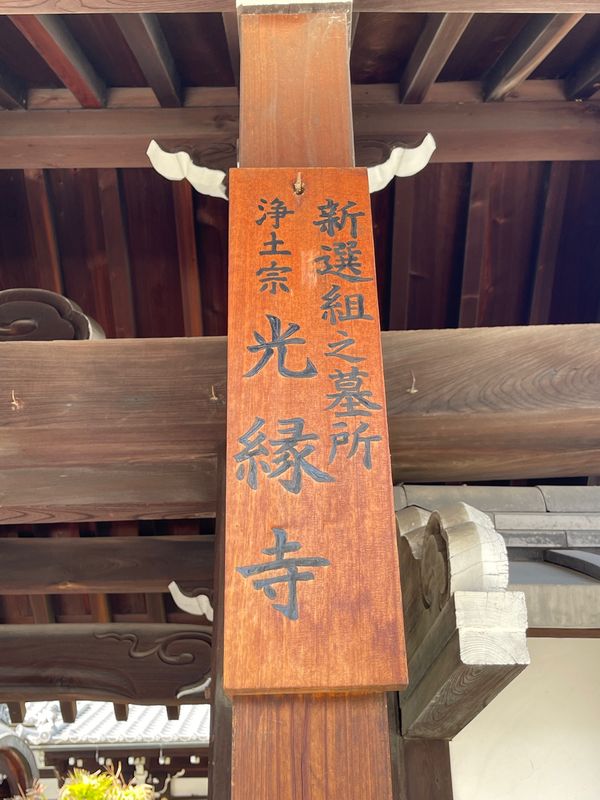 新選組之墓所
浄土宗 光縁寺